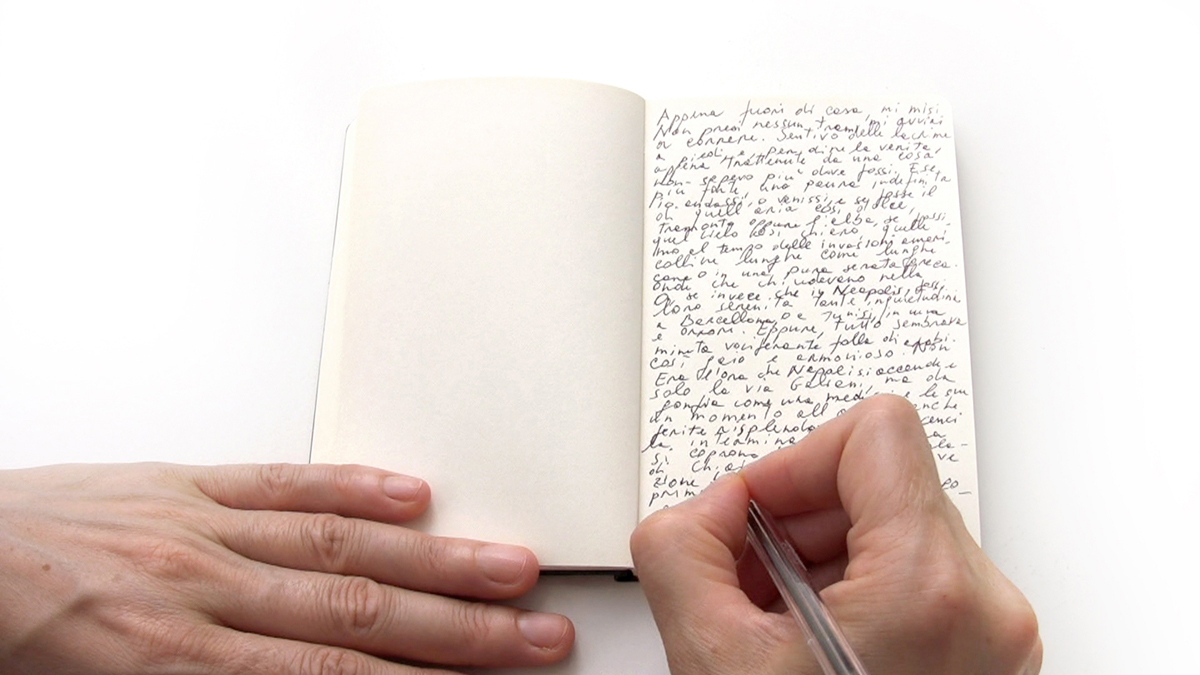 Appena fuori di casa, mi misi
Non presi nessun tram, mi avviai
a correre. Sentivo delle lacrime
a piedi e, per dire la verità,
appena trattenute da una cosa,
non sapevo più dove fossi. E se,
più forte una paura indefinita
io andassi, o venissi, e se fosse il
in quell'aria così dolce,
tramonto oppure l'alba, se fossi
quel cielo così chiaro, quelle
al tempo delle invasioni ameri-
colline lunghe come lunghe
cane o in una pura serata greca.
onde che chiudevano nella
O se invece che in Neapolis, fossi
loro serenità tante inquietudini
a Barcellona, o e Tunisi, in una
e orrori. Eppure, tutto sembrava
minuta vociferante folla di arabi.
così gaio e armonioso. Non
Era l'ora che Napoli si accende e
solo la via Galiani, ma da
gonfia come una medusa e le sue
un momento all'
ferite risplendo
in termina
si coprono
di Chia
zione
prim